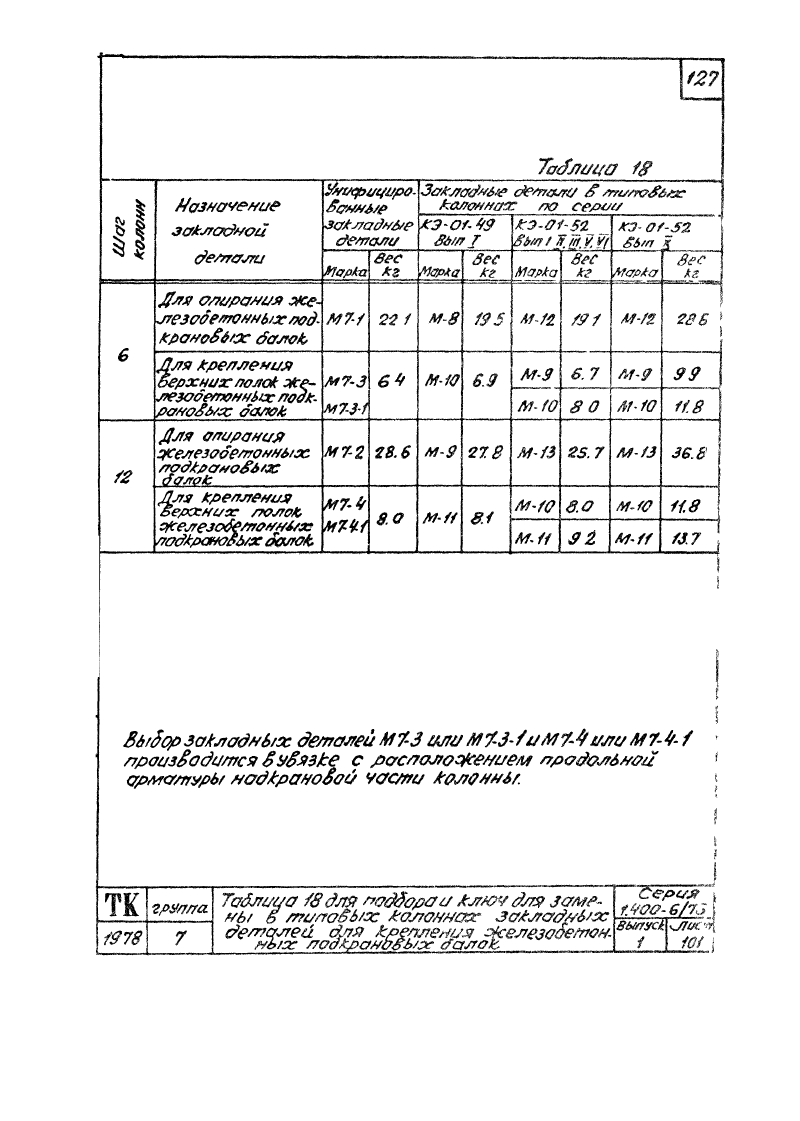 127
Таблица 18
Шаг колонн
Назначение закладной детали
Унифициро-
ванные
закладные
детали
Закладные детали в типовых
колоннах по серии
КЭ-01-49
Вып I
КЭ-01-52
Вып I II, III, V, VI
КЭ-01-52
Вып X
Марка Вес кг Марка Вес кг Марка Вес кг Марка Вес кг
6
Для опирания же-
лезобетонных под-
крановых балок
М7-1 22 1 М-8 19 5 М-12 19 1 М-12 28 6
Для крепления
верхних полок же-
лезобетонных подк-
рановых балок
М7-3
М7-3-1
6 4 М-10 6.9
М-9 6.7 М-9 9 9
М-10 8 0 М-10 11.8
12
Для опирания
железобетонных
подкрановых
балок
М7-2 28.6 М-9 27.8 М-13 25.7 М-13 36.8
Для крепления
верхних полок
железобетонных
подкрановых балок
М7-4
М7-4.1
8.0 М-11 8.1
М-10 8.0 М-10 11.8
М-11 9 2 М-11 13.7
Выбор закладных деталей М7-3 или М7-3-1 и М7-4 или М7-4-1
производится в увязке с расположением продольной
арматуры надкрановой части колонны.
ТК
1978
группа
7
Таблица 18 для подбора и ключ для заме-
ны в типовых колоннах закладных
деталей для крепления железобетон-
ных подкрановых балок
Серия
1.400-6/76
Выпуск Лист
1 101